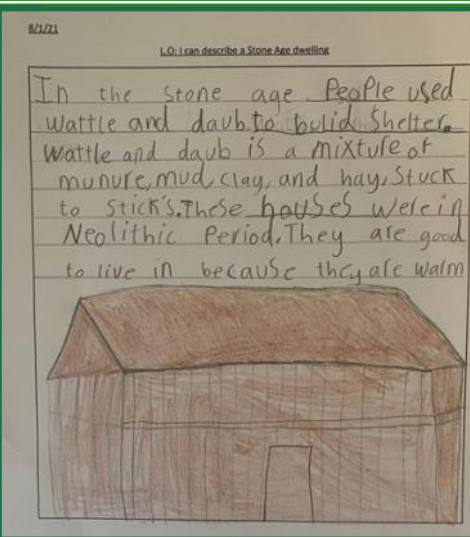 8/1/21
L.O: I can describe a Stone Age dwelling
In the Stone age People used
wattle and daub to bulid Shelter.
Wattle and daub is a mixture of
munure, mud, clay, and hay, Stuck
to Stick's. These houses were in
Neolithic Period. They are good
to live in because they are warm